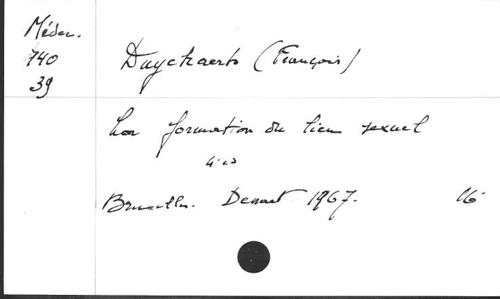 Méden.
740
39
Duyckaerts (François)
La formation du lien sexuel
4° éd
Bruxelles. Dessart 1967. 16°